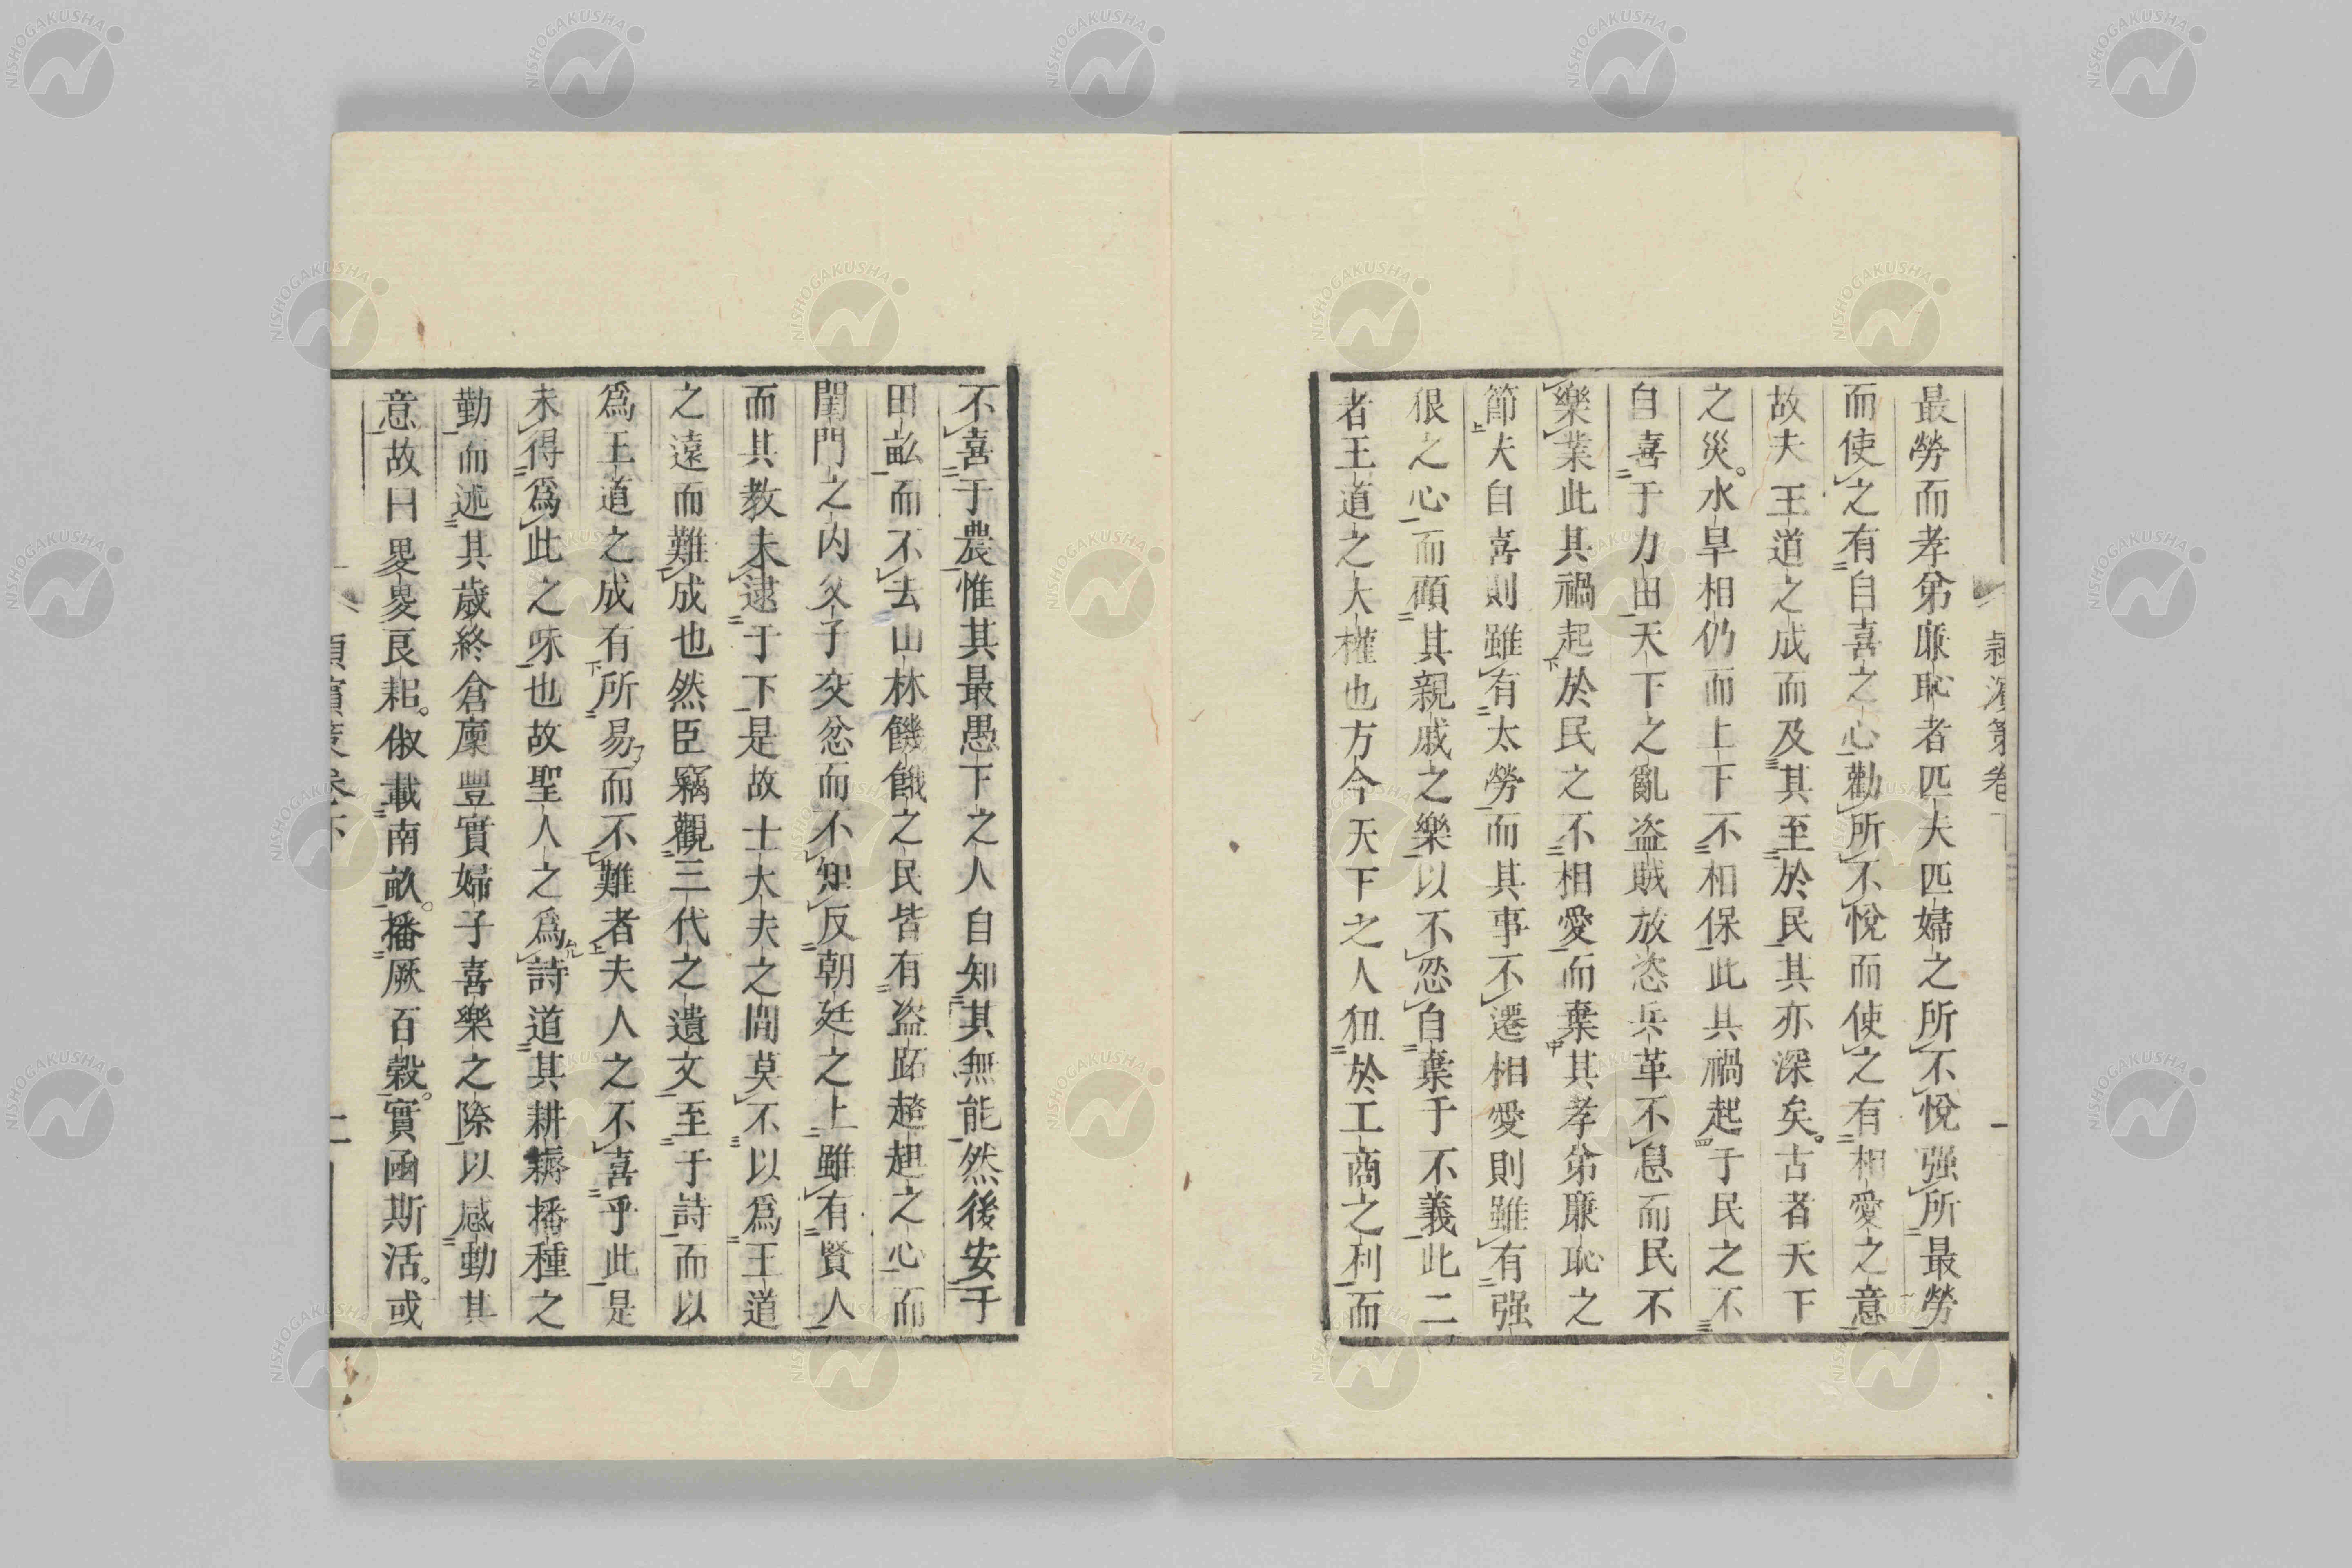 最勞而孝弟廉恥者匹夫匹婦之所不悅强所最勞
而使之有自喜之心勸所不悅而使之有相愛之意
故夫王道之成而及其至於民其亦深矣古者天下
之災水旱相仍而上下不相保此其禍起于民之不
自喜于力田天下之亂盜賊放恣兵革不息而民不
樂業此其禍起於民之不相愛而棄其孝弟廉恥之
節夫自喜則雖有太勞而其事不遷相愛則雖有强
狠之心而顧其親戚之樂以不忍自棄于不義此二
者王道之大權也方今天下之人狃於工商之利而
不喜于農惟其最愚下之人自知其無能然後安于
田畝而不去山林饑餓之民皆有盜跖趦趄之心而
閨門之内父子交忿而不知反朝廷之上雖有賢人
而其教未逮于下是故士大夫之間莫不以爲王道
之遠而難成也然臣竊觀三代之遺文至于詩而以
爲王道之成有所易而不難者夫人之不喜乎此是
未得爲此之味也故聖人之爲詩道其耕耨播種之
勤而述其歲終倉廩豐實婦子喜樂之際以感動其
意故曰畟畟良耜俶載南畝播厥百穀實函斯活或
潁濱策卷下
NISHOGAKUSHA